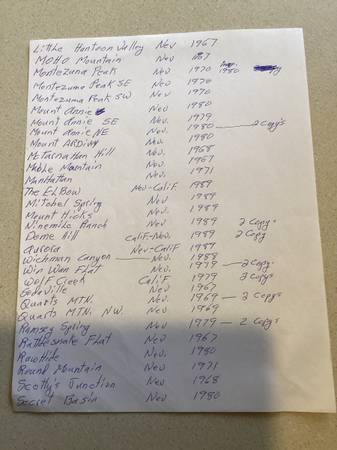 Little Huntoon Valley Nev 1967
MOHO Mountain Nev 1967
Montezuma Peak Nev 1970 1980
Montezuma Peak SE Nev 1970
Montezuma Peak SW Nev 1970
Mount Annie Nev 1980
Mount Annie SE Nev 1979
Mount Annie NE Nev 1980 — 2 Copy's
Mount ARDivy Nev 1980
McTarnathan Hill Nev. 1968
Mable Mountain Nev. 1967
Manhattan Nev. 1971
The ElBow Nev-Calif 1989
Mitobel Spring Nev 1989
Mount Hicks Nev. 1989
Ninemile Ranch Nev 1989 2 Copy's
Dome Hill Calif-Nev. 1989 2 Copy
Aurora Nev-Calif 1989
Wichman Canyon — Nev. 1988
Win Wan Flat Nev. 1979 — 2 Copy.
Wolf Creek Calif 1979 3 Copy's
Goldville Nev 1967
Quarts MTN. Nev. 1969 — 3 Copy's
Quarts MTN. N.W. Nev 1969
Ramsey Spring Nev 1979 — 2 Copy's
Rattlesnake Flat Nev 1967
RawHide Nev. 1980
Round Mountain Nev 1971
Scotty's Junction Nev 1968
Secret Basin Nev 1980